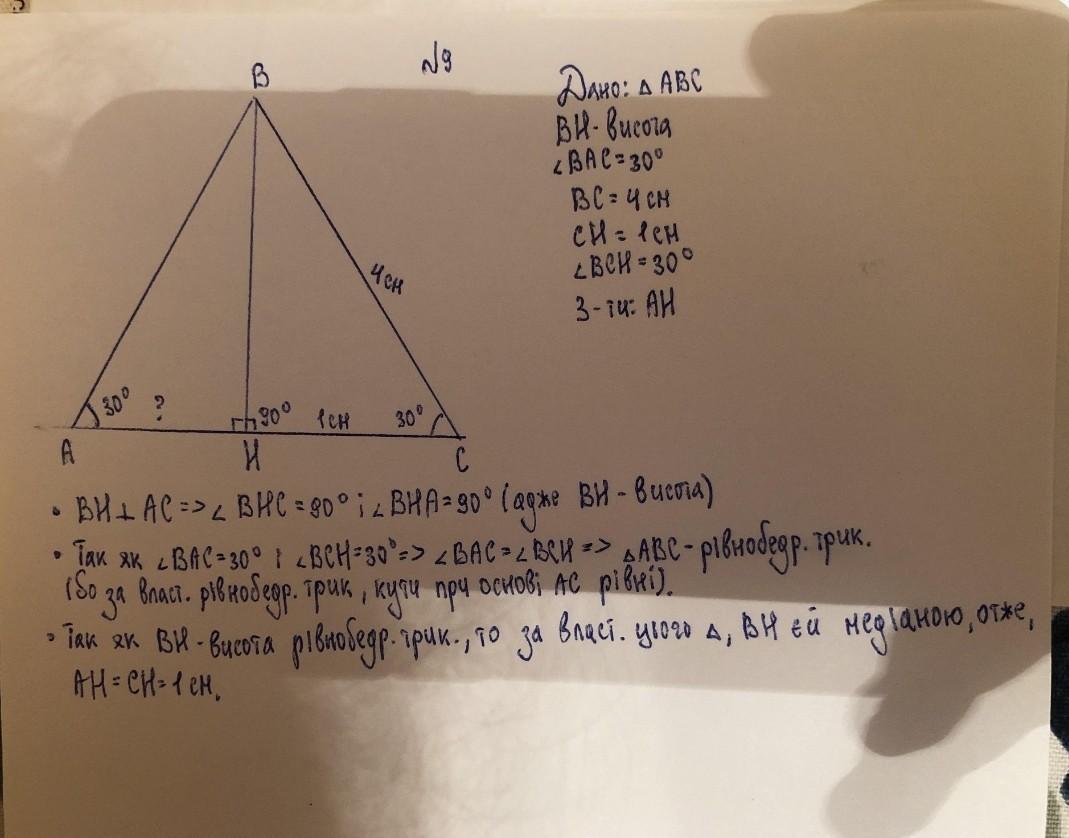 №9
B
Дано: △ ABC
BH - висота
∠BAC = 30°
BC = 4 см
CH = 1 см
∠BCH = 30°
З-ти: AH
4 см
30°
?
90°
1 см
30°
A
H
C
• BH ⊥ AC => ∠ BHC = 90° і ∠BHA = 90° (адже BH - висота)
• Так як ∠BAC = 30° і ∠BCH = 30° => ∠BAC = ∠BCH => △ABC - рівнобедр. трик.
(бо за власт. рівнобедр. трик, кути при основі AC рівні).
• Так як BH - висота рівнобедр. трик., то за власт. цього △, BH є й медіаною, отже,
AH = CH = 1 см.